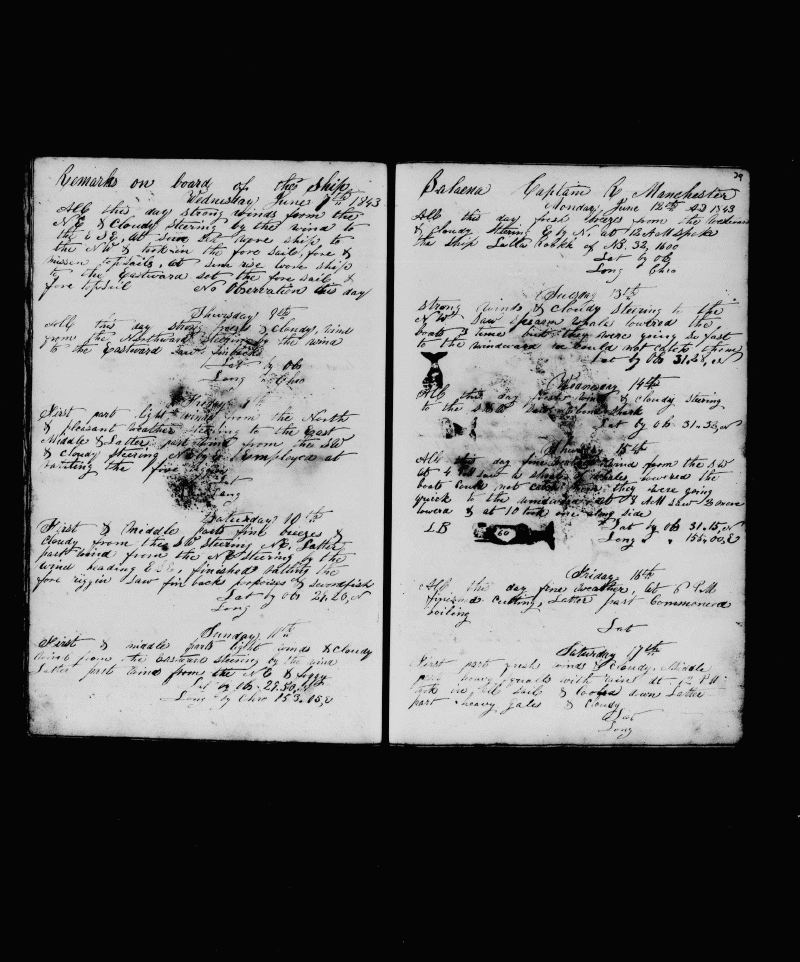 Remarks on board of the Ship
Wednesday June 7th 1843
All this day strong winds from the
N.E & Cloudy Steering by the wind to
the E S E. At Sun Set wore ship to
the N W & took in the fore sail, fore &
mizen topsails, at sun rise wore ship
to the Eastward set the fore sail &
fore topsail No Observation this day
Thursday 8th
All this day strong & cloudy, wind
from the Northward Steering by the wind
to the Eastward saw finbacks
Lat by Ob
Long Chro
Friday
First part light winds from the North
& pleasant weather steering to the East
Middle & Latter part wind from the SW
& cloudy steering N by E employed at
the fore
Lat
Long
Saturday 10th
First & middle parts fine breezes &
cloudy from the SW steering NE. Latter
part wind from the NE steering by the
wind heading E S E, finished the
fore riggin saw fin back porpoises & swordfish
Lat by Ob N
Long
Sunday 11th
First & middle parts light winds & cloudy
wind from the Eastward steering by the wind
Latter part wind from the N E & foggy
Lat by Ob 29.50. N
Long by Chro 153.15, E
29
Balaena Captain R Manchester
Monday June 12th AD 1843
All this day fresh breezes from the Westward
& cloudy Steering E by N. at 12 AM spoke
the ship of NB, 32, 1600
Lat by Ob
Long Chro
Tuesday 13th
Strong winds & cloudy steering to the
N W. Saw sperm whale lowered the
boats 3 times they were going so fast
to the windward we could not catch them
Lat by Ob 31.28, N
Wednesday 14th
All this day wind & cloudy stering
to the shark
Lat by Ob 31.38, N
Thursday 15th
All this day fine wind from the SW
at 4 whales lowered the
boats could not catch them they were going
quick to the windward at 8 AM saw & more
lowerd & at 10 took one along side
LB 60 Lat by Ob 31.15, N
Long 155,00, E
Friday 16th
All this day fine weather, at 6 PM
finished cutting, Latter part Commenced
boiling
Lat
Saturday 17th
First part fresh wind & cloudy. Middle
part heavy squalls with wind at 12 PM
took in sail & cooled down Latter
part heavy gales & cloudy
Lat
Long